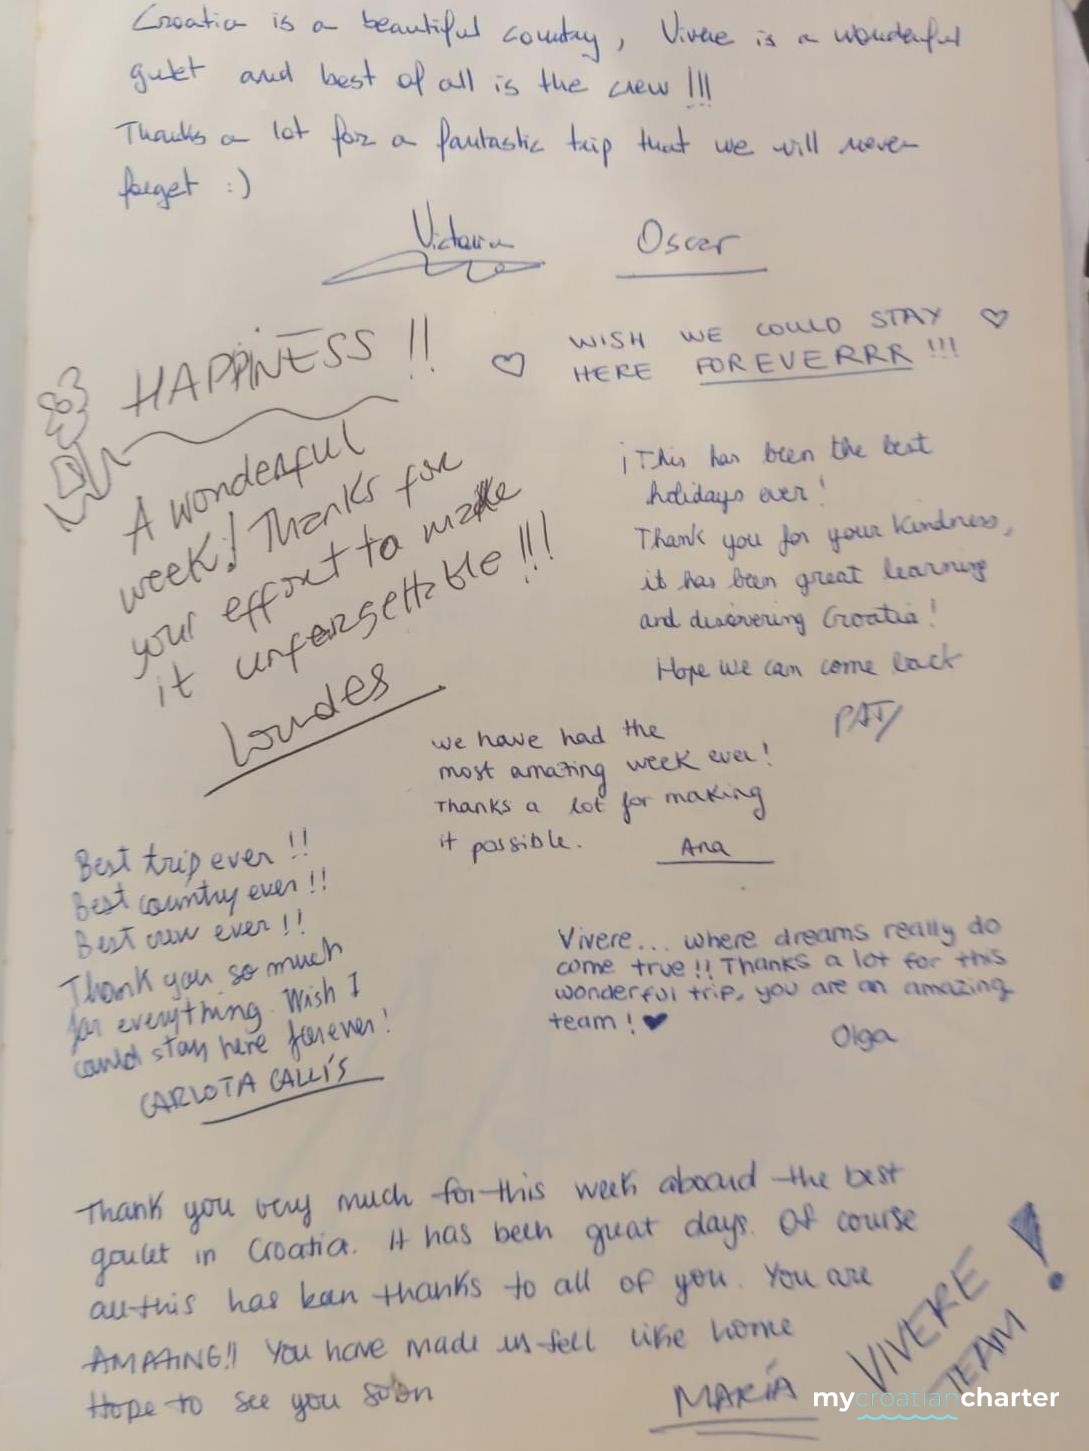 Croatia is a beautiful country, Vivere is a wonderful
gulet and best of all is the crew !!!
Thanks a lot for a fantastic trip that we will never
forget :)
Victoria
Oscar
HAPPINESS !!
A wonderful
week! Thanks for
your effort to make
it unforgettable !!!
Lourdes
♡ WISH WE COULD STAY ♡
HERE FOREVERRR !!!
¡This has been the best
holidays ever!
Thank you for your kindness,
it has been great learning
and discovering Croatia!
Hope we can come back
PATY
we have had the
most amazing week ever!
Thanks a lot for making
it possible.
Ana
Best trip ever !!
Best country ever !!
Best crew ever !!
Thank you so much
for everything. Wish I
could stay here forever!
CARLOTA CALLÍS
Vivere... where dreams really do
come true !! Thanks a lot for this
wonderful trip, you are an amazing
team! ♥
Olga
Thank you very much for this week aboard the best
goulet in Croatia. It has been great days. Of course
all this has been thanks to all of you. You are
AMAZING!! You have made us fell like home
Hope to see you soon
MARÍA
VIVERE
TEAM !
mycroatiancharter